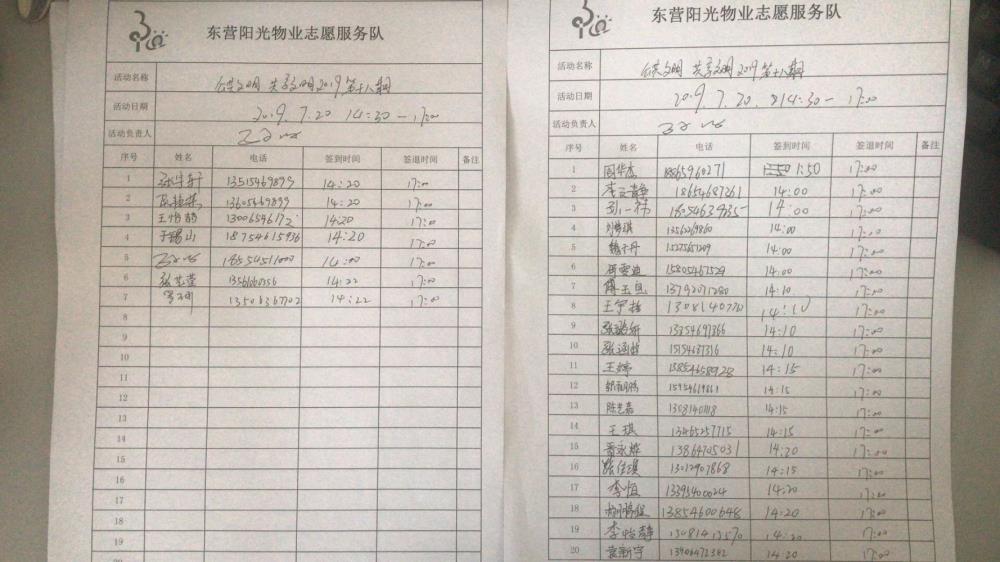 东营阳光物业志愿服务队
活动名称 公共文明 共享文明2019第十八期
活动日期 2019.7.20 14:30-17:00
活动负责人
序号 姓名 电话 签到时间 签退时间 备注
1 13515469899 14:20 17:00
2 13605469899 14:20 17:00
3 王怡韵 14:20 17:00
4 于锡山 18754615936 14:20 17:00
5 18554511000 14:00 17:00
6 14:22 17:00
7 13506367702 14:22 17:00
8
9
10
11
12
13
14
15
16
17
18
19
东营阳光物业志愿服务队
活动名称 公共文明 共享文明2019第十八期
活动日期 2019.7.20. 14:30-17:00
活动负责人
序号 姓名 电话 签到时间 签退时间 备注
1 周华杰 1865960271 1:50 17:00
2 李文静 18654687261 14:00 17:00
3 孙一祎 18054639355 14:00 17:00
4 刘梦琪 1356269860 14:00 17:00
5 14:00 17:00
6 15805467529 14:00 17:00
7 13792071280 14:10 17:00
8 王宇哲 1308140770 14:10 17:00
9 13354697366 14:10 17:00
10 张涵哲 15154687316 14:10 17:00
11 王婷 15854658928 14:15 17:00
12 15954619861 14:15 17:00
13 陈艺嘉 14:15 17:00
14 王琪 13465257715 14:15 17:00
15 13864705031 14:20 17:00
16 张佳琪 13012907868 14:15 17:00
17 李恒 13395400024 14:20 17:00
18 13854600648 14:20 17:00
19 李怡静 14:20 17:00
20 袁新宇 13906472382 14:20 17:00